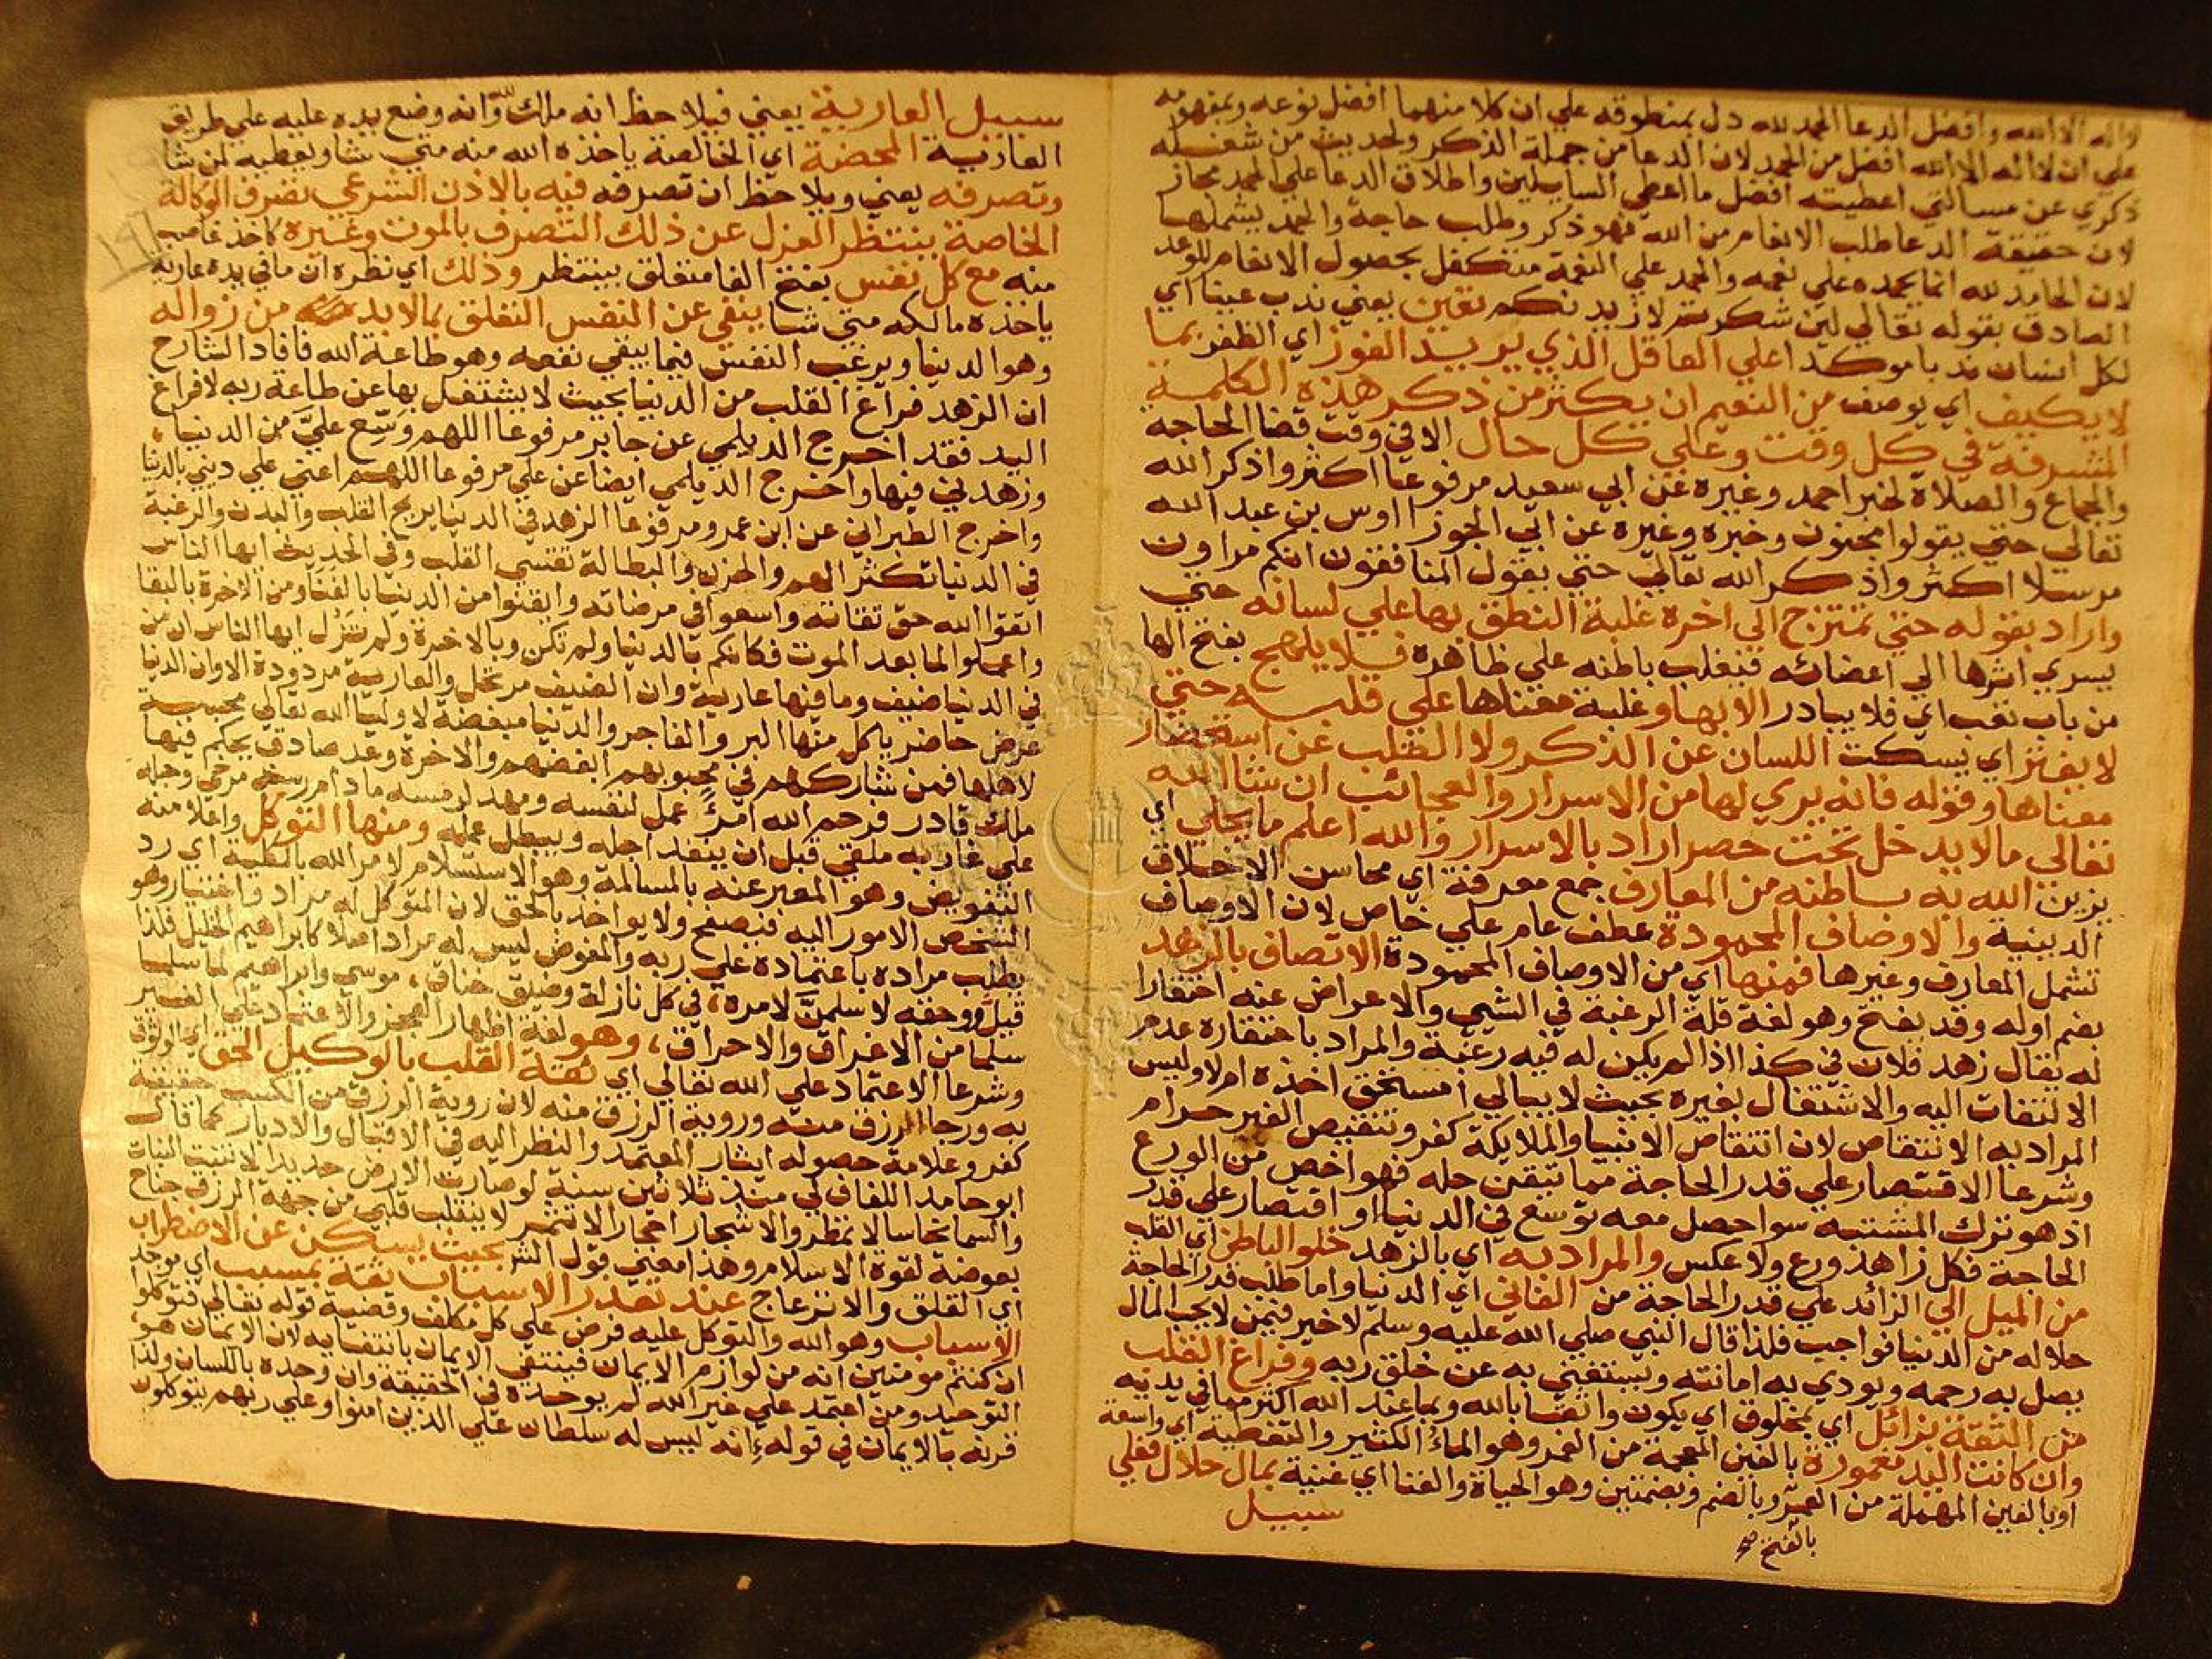 واله الا الله وافضل الدعا الحمد لله دل بمنطوقه علي ان كلا منهما افضل نوعه وبمفهومه
علي ان لا اله الا الله افضل من الحمد لان الدعا من جملة الذكر ولحديث من شغله
ذكري عن مسالتي اعطيته افضل ما اعطي السايلين واطلاق الدعا علي الحمد مجاز
لان حقيقة الدعا طلب الانعام من الله فهو ذكر وطلب حاجة والحمد يشملها
لان الحامد لله انما يحمده علي نعمه والحمد علي النعمة متكفل بحصول الانعام للوعد
الصادق بقوله تعالي لين شكرتم لازيدنكم تعين يعني ندب عينا اي
لكل انسان ندبا موكدا علي العاقل الذي يريد الفوز اي الظفر بما
لا يكيف اي يوصف من النعيم ان يكثر من ذكر هذه الكلمة
المشرفة في كل وقت وعلي كل حال الا في وقت قضا الحاجة
والجماع والصلاة لخبر احمد وغيره عن ابي سعيد مرفوعا اكثروا ذكر الله
تعالي حتي يقولوا مجنون وخبره وغيره عن ابي الجوزا اوس بن عبد الله
مرسلا اكثروا ذكر الله تعالي حتي يقول المنافقون انكم مراون
واراد بقوله حتي تمتزج الي اخره غلبة النطق بها علي لسانه حتي
يسري اثرها الي اعضائه فيغلب باطنه علي ظاهره فلا يلهج بفتح الها
من باب تعب اي فلا يبادر الا بها وغلبة معناها علي قلبه حتي
لا يفتر اي يسكت اللسان عن الذكر ولا القلب عن استحضار
معناها وقوله فانه يري لها من الاسرار والعجائب ان شا الله
تعالي ما لا يدخل تحت حصر اراد بالاسرار والله اعلم ما يحلي اي
يزين الله به باطنه من المعارف جمع معرفة اي محاسن الاخلاق
الدينية والاوصاف المحمودة عطف عام علي خاص لان الاوصاف
تشمل المعارف وغيرها فمنها اي من الاوصاف المحمودة الاتصاف بالزهد
بضم اوله وقد يفتح وهو لغة قلة الرغبة في الشي والاعراض عنه احتقارا
له يقال زهد فلان في كذا اذا لم يكن له فيه رغبة والمراد باحتقاره عدم
الالتفات اليه والاشتغال بغيره بحيث لا يبالي استحق اخذه ام لا وليس
المراد به الانتقاص لان انتقاص الانبيا والملايكة كفر وتنقيص الغير حرام
وشرعا الاقتصار علي قدر الحاجة مما تيقن حله فهو اخص من الورع
اذ هو ترك المشتبه سوا حصل معه توسع في الدنيا او اقتصار علي قدر
الحاجة فكل زاهد ورع ولا عكس والمراد به اي بالزهد خلو الباطن اي القلب
من الميل الي الزائد علي قدر الحاجة من الفاني اي الدنيا واما طلب قدر الحاجة
حلاله من الدنيا فواجب فلذا قال النبي صلي الله عليه وسلم لا خير فيمن لا يحب المال
يصل به رحمه ويودي به امانته ويستغني به عن خلق ربه وفراغ القلب
من الثقة بزائل اي بمخلوق اي يكون واثقا بالله وبما عند الله اكثر مما في يديه
وان كانت اليد مغمورة بالغين المعجمة من الغمر وهو الماء الكثير والتغطية اي واسعة
او بالعين المهملة من العمر وبالضم وبضمتين وهو الحياة والغنا اي غنية بمال حلال فعلي
بالفتح صح
سبيل
سبيل العارية يعني فيلاحظ انه ملك لله وانه وضع يده عليه علي طريق
العارية المحضة اي الخالصة ياخذه الله منه متي شا ويعطيه لمن شا
وتصرفه يعني ويلاحظ ان تصرفه فيه بالاذن الشرعي تصرف الوكالة
الخاصة ينتظر العزل عن ذلك التصرف بالموت وغيره كاخذ غاصب
منه مع كل نفس بفتح الفا متعلق بينتظر وذلك اي نظره ان ما في يده عارية
ياخذه مالكه متي شا ينفي عن النفس التعلق بما لا بد من زواله
وهو الدنيا ويرغب النفس فيما يبقي نفعه وهو طاعة الله فافاد الشارح
ان الزهد فراغ القلب من الدنيا بحيث لا يشتغل بها عن طاعة ربه لا فراغ
اليد فقد اخرج الديلمي عن جابر مرفوعا اللهم وسع علي من الدنيا
وزهدني فيها واخرج الديلمي ايضا عن علي مرفوعا اللهم اعني علي ديني بالدنيا
واخرج الطبراني عن ابن عمرو مرفوعا الزهد في الدنيا يريح القلب والبدن والرغبة
في الدنيا تكثر الهم والحزن والبطالة تقسي القلب وفي الحديث ايها الناس
اتقوا الله حق تقاته واسعوا في مرضاته وايقنوا من الدنيا بالفنا ومن الاخرة بالبقا
واعملوا لما بعد الموت فكانكم بالدنيا ولم تكن وبالاخرة ولم تزل ايها الناس ان من
في الدنيا ضيف وما فيها عارية وان الضيف مرتحل والعارية مردودة الا وان الدنيا
عرض حاضر ياكل منها البر والفاجر والدنيا مبغضة لاوليا الله تعالي محببة
لاهلها فمن شاركهم في محبوبهم ابغضهم والاخرة وعد صادق يحكم فيها
ملك قادر فرحم الله امرء عمل لنفسه ومهد لرمسه ما دام رسنه مرخي وحبله
علي غاربه ملقي قبل ان ينفد اجله ويبطل عمله ومنها التوكل واعلا منه
التفويض وهو المعبر عنه بالمسالمة وهو الاستسلام لامر الله بالكلية اي رد
الشخص الامور اليه فيصفح ولا يواخذ بالحق لان المتوكل له مراد واختيار وهو
يطلب مراده باعتماده علي ربه والمفوض ليس له مراد اصلا كابراهيم الخليل فلذا
قيل ووحقه لاسلمن لامره، في كل نازلة وضيق خناق، موسي وابراهيم لما سلما
سلما من الاغراق والاحراق، وهو لغة اظهار العجز والاعتماد علي الغير
وشرعا الاعتماد علي الله تعالي اي ثقة القلب بالوكيل الحق اي الوثوق
به ورجا الرزق منه وروية الرزق منه لان روية الرزق من الكسب حقيقة
كفر وعلامة حصوله ايثار المعتمد والنظر اليه في الاقبال والادبار كما قال
ابو حامد اللفاف لي منذ ثلاثين سنة لو صارت الارض حديدا لا تنبت النبات
والسما نحاسا لا تمطر والاشجار احجارا لا تثمر لا ينقلب قلبي من جهة الرزق جناح
بعوضة لقوة الاسلام وهذا معني قول الشر بحيث يسكن عن الاضطراب
اي القلق والانزعاج عند تعذر الاسباب ثقة بمسبب اي موجد
الاسباب وهو الله والتوكل عليه فرض علي كل مكلف وقضية قوله تعالي فتوكلوا
ان كنتم مومنين انه من لوازم الايمان فينتفي الايمان بانتفايه لان الايمان هو
التوحيد ومن اعتمد علي غير الله لم يوحده في الحقيقة وان وحده باللسان ولذا
قرنه بالايمان في قوله انه ليس له سلطان علي الذين امنوا وعلي ربهم يتوكلون